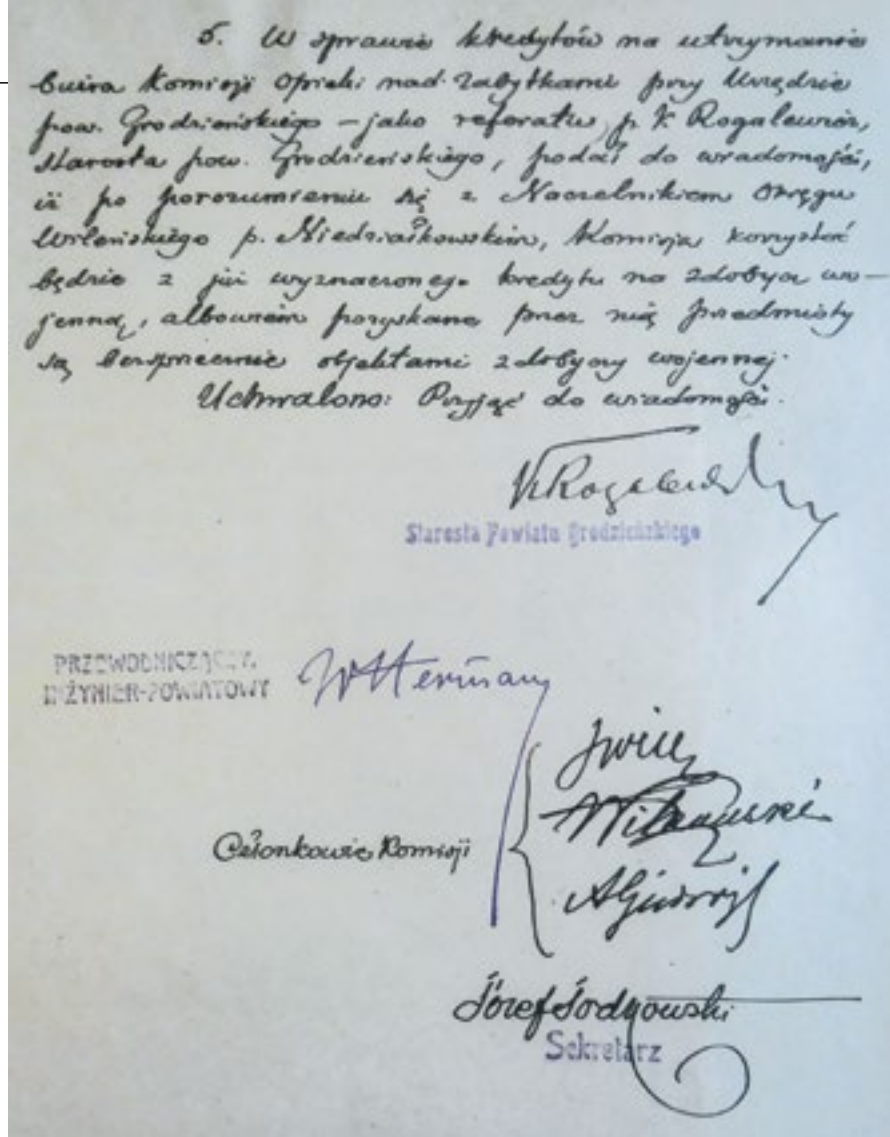 5. W sprawie kredytów na utrzymanie
biura Komisji Opieki nad Zabytkami przy Urzędzie
pow. Grodzieńskiego – jako referatu, p. K. Rogalewicz,
Starosta pow. Grodzieńskiego, podał do wiadomości,
iż po porozumieniu się z Naczelnikiem Okręgu
Wileńskiego p. Niedziałkowskim, Komisja korzystać
będzie z już wyznaczonego kredytu na zdobycz wo–
jenną, albowiem pozyskane przez nią przedmioty
są bezsprzecznie objektami zdobyczy wojennej.
Uchwalono: Przyjąć do wiadomości.
Starosta Powiatu Grodzieńskiego
PRZEWODNICZĄCY,
INŻYNIER-POWIATOWY
Członkowie Komisji
Józef Jodkowski
Sekretarz